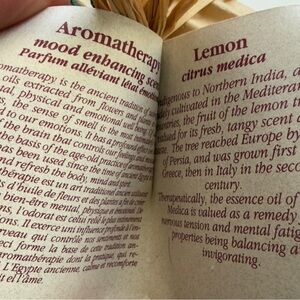 Aromatherapy
mood enhancing
Parfum alléviant l'état
aromatherapy is the ancient tradition of
oils extracted from flowers and
physical, physical and emotional
the sense of smell is the most
to our emotions. It has a profound
the brain that control our feelings and
the basis of the age-old practice of
has been used since the time of ancient
refresh the body, mind and spirit.
est un art traditionnel ancien
d'huile de fleurs et des plantes a fin de
bien-être mental, physique et émotional.
l'odorat est celui relié le plus
Il exerce une influence profonde
cerveau qui contrôle nos sentiments et nos
forme la base de cette tradition
aromathérapie dont la pratique, qui
à l'Egypte ancienne, calme et reconforte
et l'âme.
Lemon
citrus medica
Indigenous to Northern India, a
widely cultivated in the Mediterran
the fruit of the lemon
for its fresh, tangy scent
The tree reached Europe by
of Persia, and was grown first
Greece, then in Italy in the sec
century.
Therapeutically, the essence oil of
Medica is valued as a remedy
nervous tension and mental fatig
properties being balancing a
invigorating.